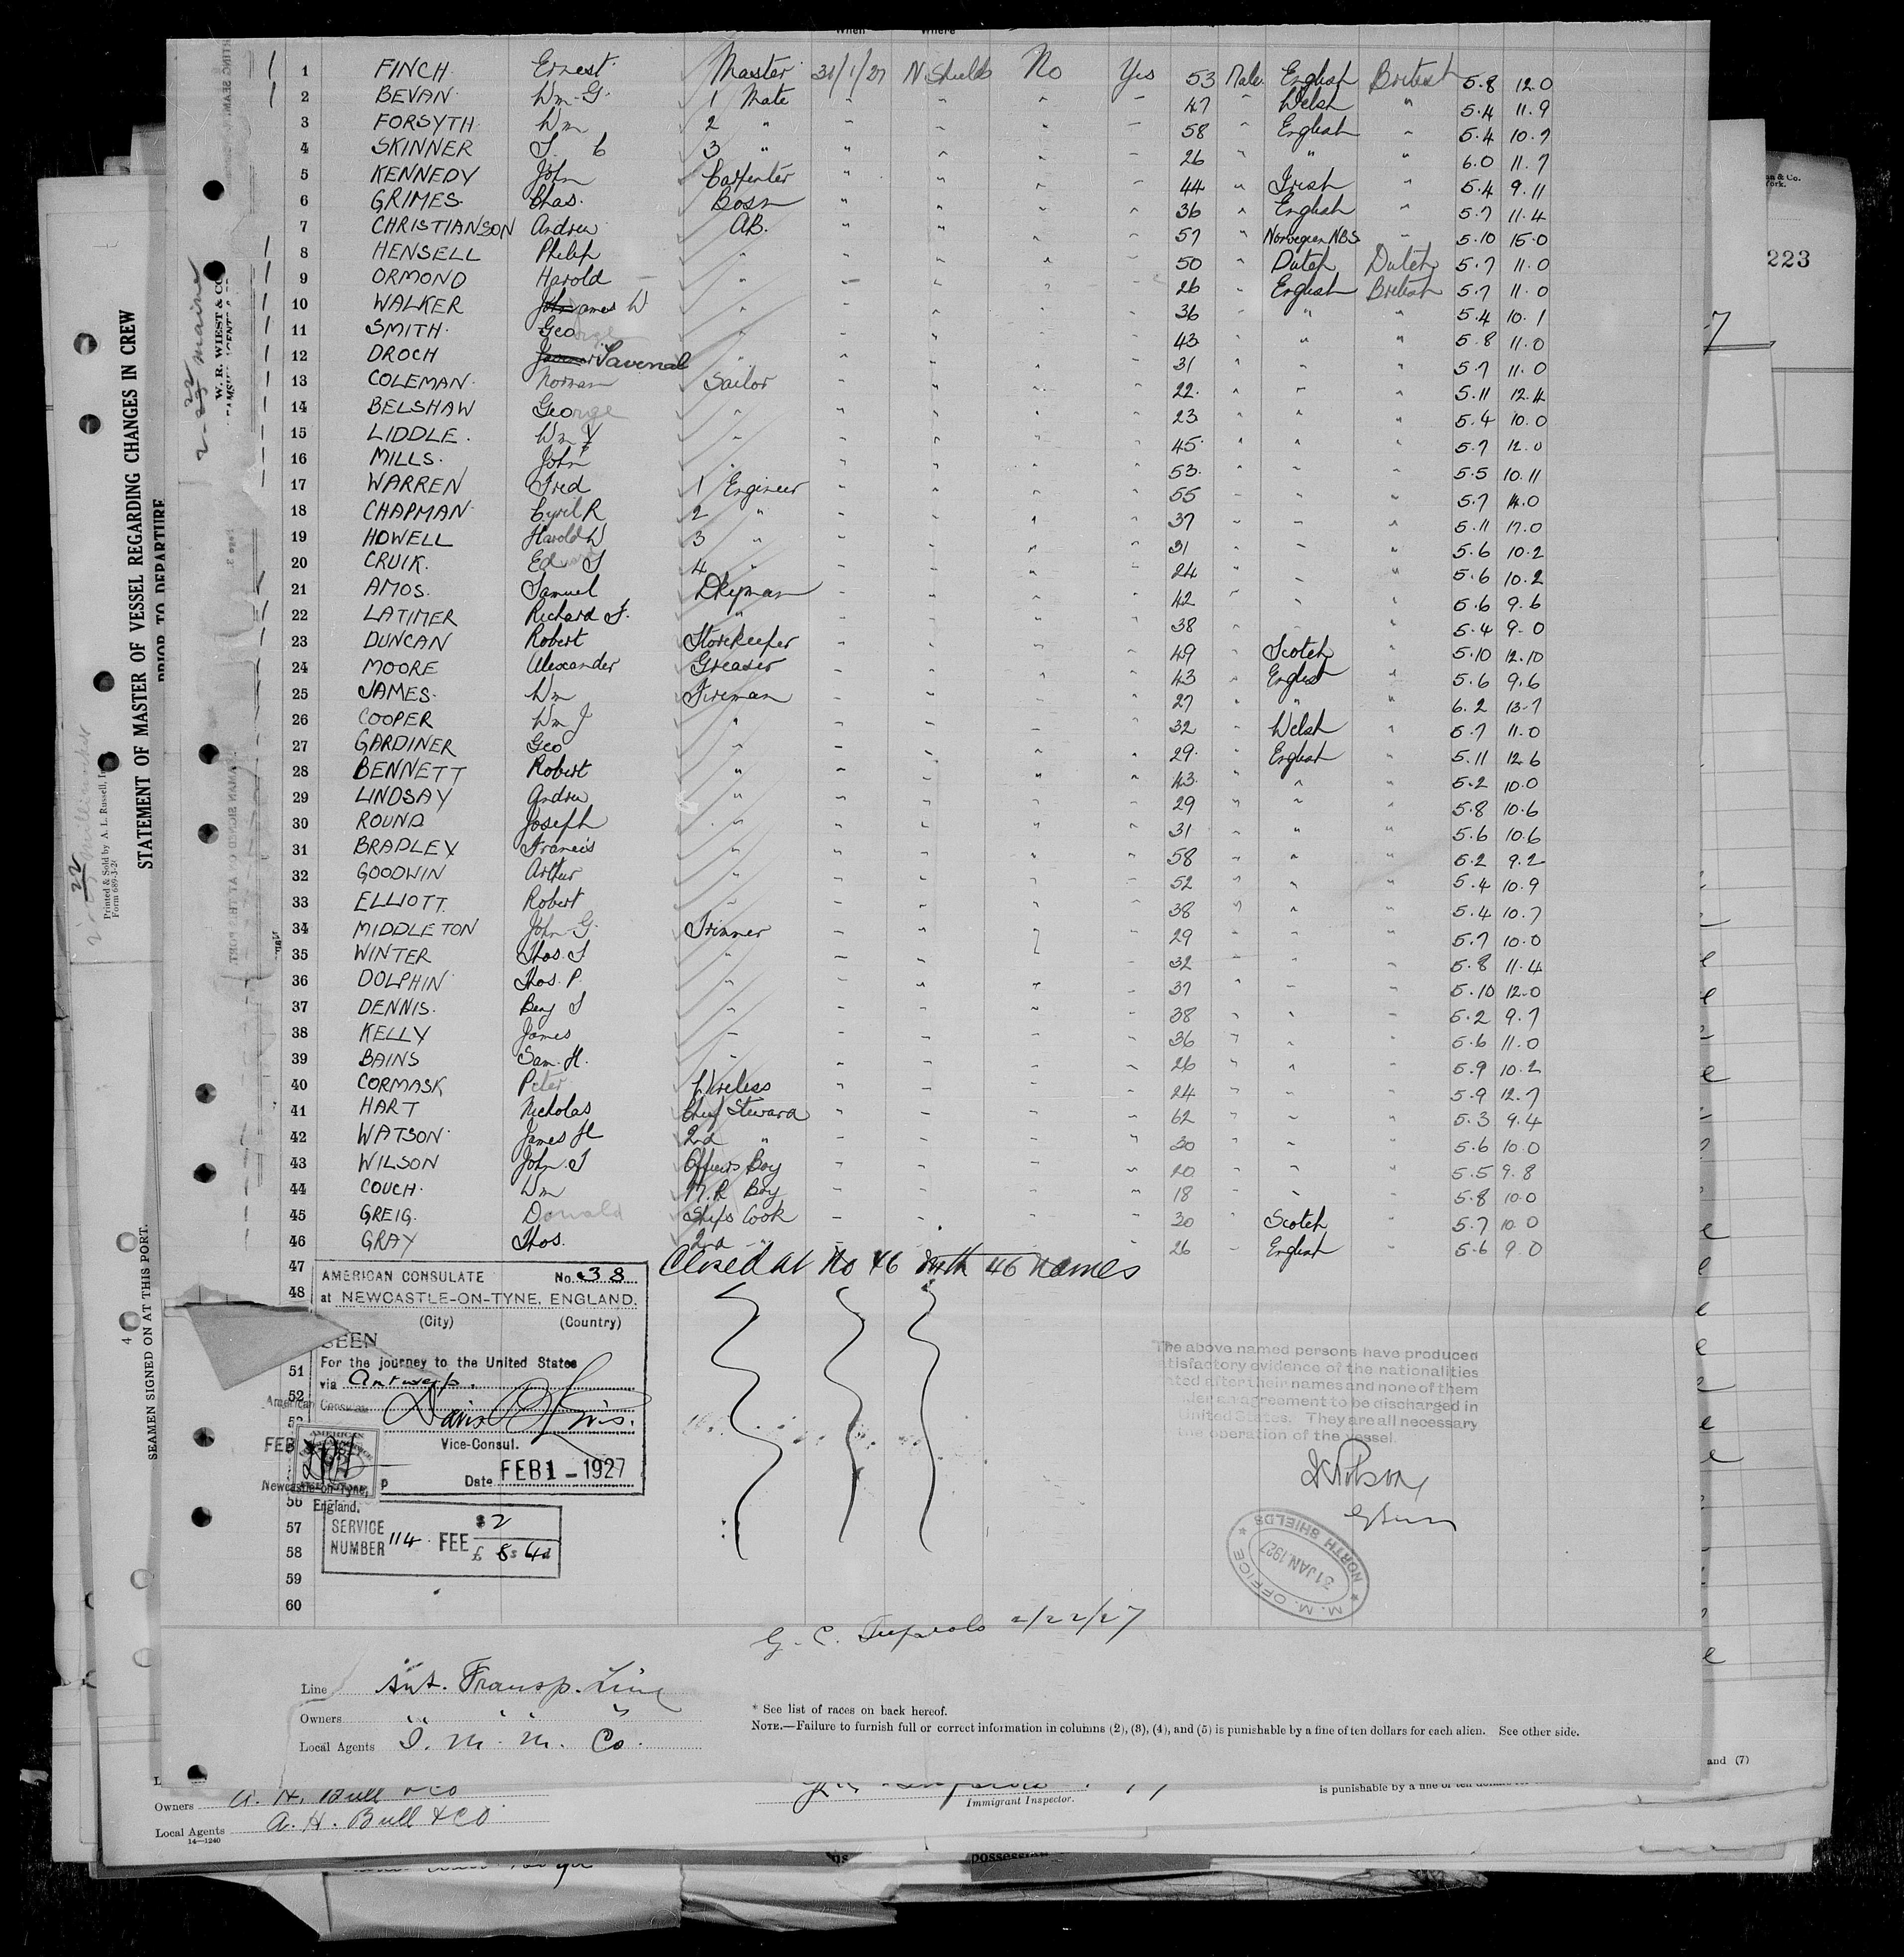 1 FINCH. Ernest. Master 31/1/27 N. Shields No Yes 53 Male English British 5.8 12.0
2 BEVAN. Wm. G. 1 Mate " " " " 47 " Welsh " 5.4 11.9
3 FORSYTH. Wm 2 " " " " " 58 " English " 5.4 10.7
4 SKINNER 3 " " " " " 26 " " " 6.0 11.7
5 KENNEDY John Carpenter " " " " 44 " Irish " 5.4 9.11
6 GRIMES. Chas. Bosn " " " " 36 " English " 5.7 11.4
7 CHRISTIANSON Andrew AB. " " " " 57 " Norwegian NBS " 5.10 15.0
8 HENSELL Philip " " " " " 50 " Dutch Dutch 5.7 11.0
9 ORMOND Harold " " " " " 26 " English British 5.7 11.0
10 WALKER James W " " " " " 36 " " " 5.4 10.1
11 SMITH. George " " " " " 43 " " " 5.8 11.0
12 DROCH Savenal " " " " " 31 " " " 5.7 11.0
13 COLEMAN. Norman Sailor " " " " 22. " " " 5.11 12.4
14 BELSHAW George " " " " " 23 " " " 5.4 10.0
15 LIDDLE. Wm " " " " " 45 " " " 5.7 12.0
16 MILLS. John " " " " " 53. " " " 5.5 10.11
17 WARREN Fred 1 Engineer " " " " 55 " " " 5.7 14.0
18 CHAPMAN. Cyril R 2 " " " " " 37 " " " 5.11 17.0
19 HOWELL Harold W 3 " " " " " 31 " " " 5.6 10.2
20 CRUIK. Edward S 4 " " " " " 24 " " " 5.6 10.2
21 AMOS. Samuel Dkyman " " " " 42 " " " 5.6 9.6
22 LATIMER Richard S. " " " " " 38 " " " 5.4 9.0
23 DUNCAN Robert Storekeeper " " " " 49 " Scotch " 5.10 12.10
24 MOORE Alexander Greaser " " " " 43 " English " 5.6 9.6
25 JAMES. Wm Fireman " " " " 27 " " " 6.2 13.7
26 COOPER Wm J " " " " " 32 " Welsh " 5.7 11.0
27 GARDINER Geo " " " " " 29. " English " 5.11 12.6
28 BENNETT Robert " " " " " 43. " " " 5.2 10.0
29 LINDSAY Andrew " " " " " 29 " " " 5.8 10.6
30 ROUND Joseph " " " " " 31 " " " 5.6 10.6
31 BRADLEY Francis " " " " " 58 " " " 5.2 9.2
32 GOODWIN Arthur " " " " " 52 " " " 5.4 10.9
33 ELLIOTT. Robert " " " " " 38 " " " 5.4 10.7
34 MIDDLETON John G. Trimmer " " " " 29 " " " 5.7 10.0
35 WINTER Thos. S " " " " " 32 " " " 5.8 11.4
36 DOLPHIN Thos. P. " " " " " 37 " " " 5.10 12.0
37 DENNIS. Benj S " " " " " 38 " " " 5.2 9.7
38 KELLY James " " " " " 36 " " " 5.6 11.0
39 BAINS Sam. H. " " " " " 26 " " " 5.9 10.2
40 CORMASK Peter Wireless " " " " 24 " " " 5.9 12.7
41 HART Nicholas Chief Steward " " " " 62 " " " 5.3 9.4
42 WATSON. James H 2nd " " " " " 30 " " " 5.6 10.0
43 WILSON John. S Officers Boy " " " " 20 " " " 5.5 9.8
44 COUCH. Wm M.R Boy " " " " 18 " " " 5.8 10.0
45 GREIG. Donald Ships Cook " " " " 30 " Scotch " 5.7 10.0
46 GRAY Thos. 2nd " " " " " 26 " English " 5.6 9.0
47 Closed at No 46 with 46 names
48
51
52
56
57
58
59
60
AMERICAN CONSULATE No. 38
at NEWCASTLE-ON-TYNE, ENGLAND.
(City) (Country)
SEEN
For the journey to the United States
via Antwerp.
Vice-Consul.
Date FEB 1 - 1927
American Consulate
FEB
Newcastle-on-Tyne,
England.
SERVICE NUMBER 114. FEE $2
£ 8s 4d
The above named persons have produced
satisfactory evidence of the nationalities
stated after their names and none of them
under an agreement to be discharged in
United States. They are all necessary
the operation of the vessel.
M. M. OFFICE
31 JAN. 1927
NORTH SHIELDS
2/22/27
Line Ant. Transp. Line
Owners " " "
Local Agents I. M. M. Co.
* See list of races on back hereof.
NOTE.—Failure to furnish full or correct information in columns (2), (3), (4), and (5) is punishable by a fine of ten dollars for each alien. See other side.
and (7)
Owners A. H. Bull & Co
Local Agents A. H. Bull & Co.
14—1240
Immigrant Inspector.
is punishable by a fine of ten
possession
STATEMENT OF MASTER OF VESSEL REGARDING CHANGES IN CREW
PRIOR TO DEPARTURE
Printed & Sold by A. L. Russell, In
Form 689-3-2
SEAMEN SIGNED ON AT THIS PORT.
4
W. R. WIEST & CO.
223